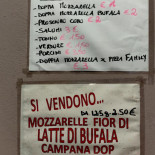 - DOPPIA MOZZARELLA € 1
- DOPPIA MOZZARELLA BUFALA € 2
- PROSCIUTTO CRUDO € 2
- SALUMI € 1
- TONNO € 1.50
- PORCINI
- DOPPIA MOZZARELLA X PIZZA FAMILY € 3
SI VENDONO...
DA 125g 2.50€
MOZZARELLE FIOR DI
LATTE DI BUFALA
CAMPANA DOP